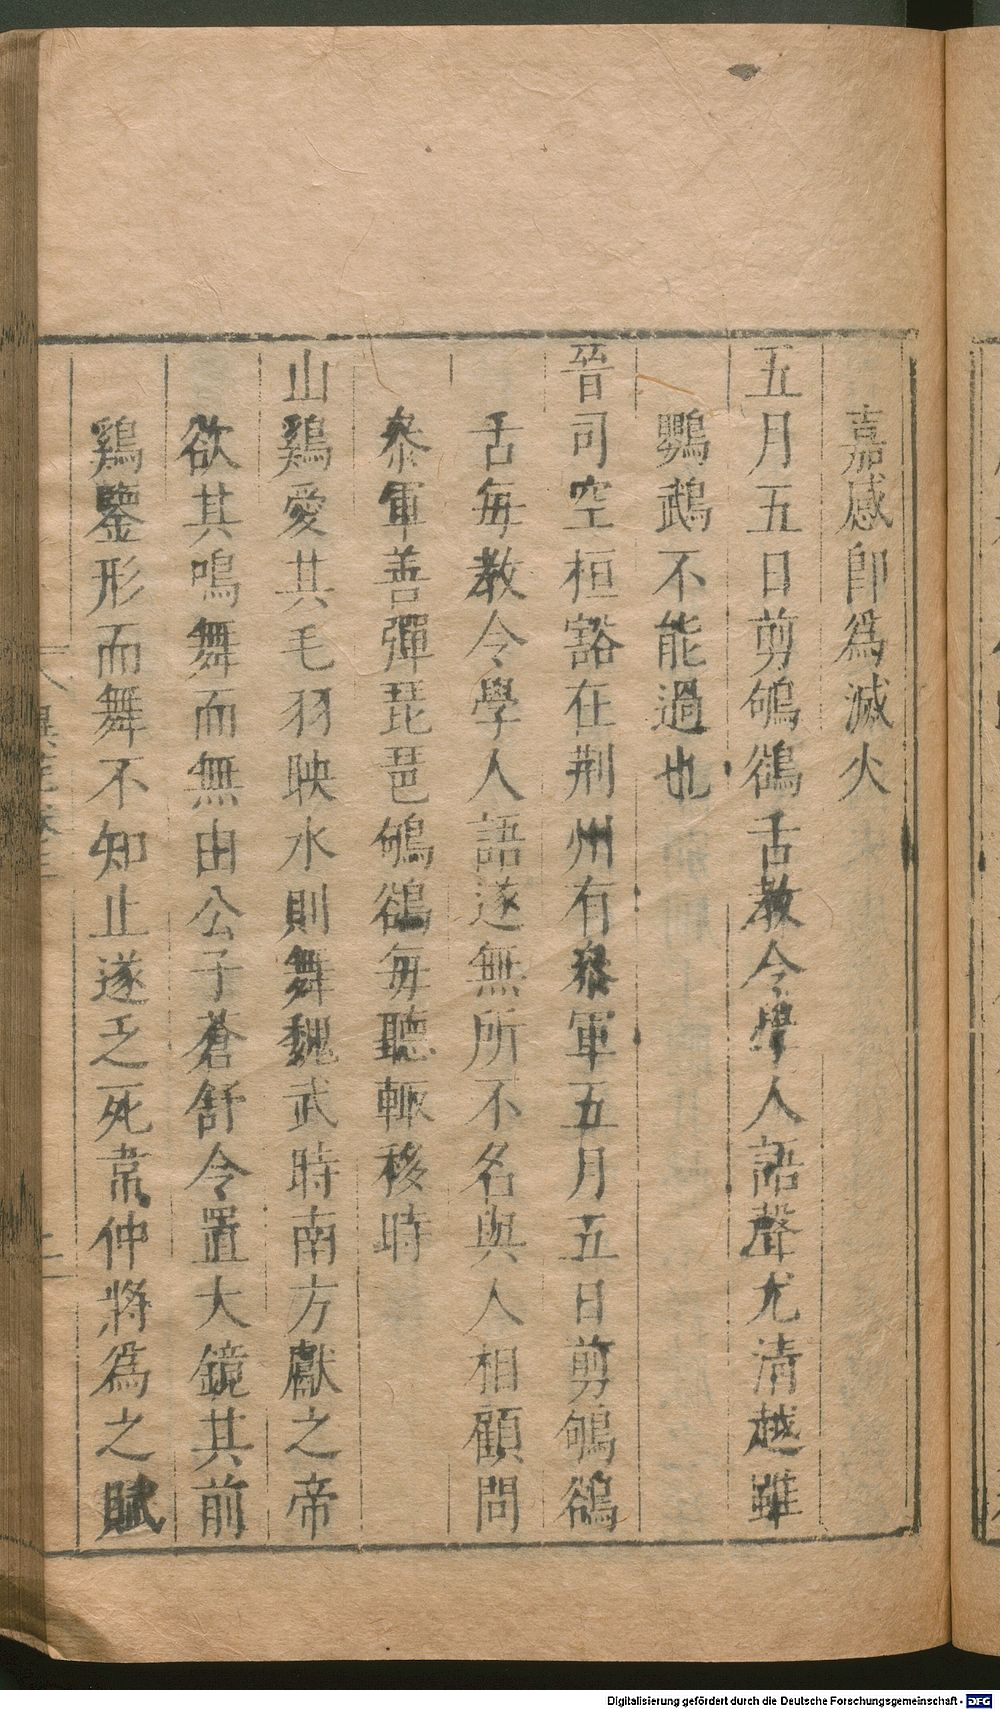 嘉感即為滅火
五月五日剪鴝鵒舌教令學人語聲尤清越雖
鸚鵡不能過也
晉司空桓豁在荆州有叅軍五月五日剪鴝鵒
舌每教令學人語遂無所不名與人相顧問
叅軍善彈琵琶鴝鵒每聽輒移時
山鷄愛其毛羽映水則舞魏武時南方獻之帝
欲其鳴舞而無由公子蒼舒令置大鏡其前
鷄鑒形而舞不知止遂乏死韋仲將為之賦
Digitalisierung gefördert durch die Deutsche Forschungsgemeinschaft - DFG